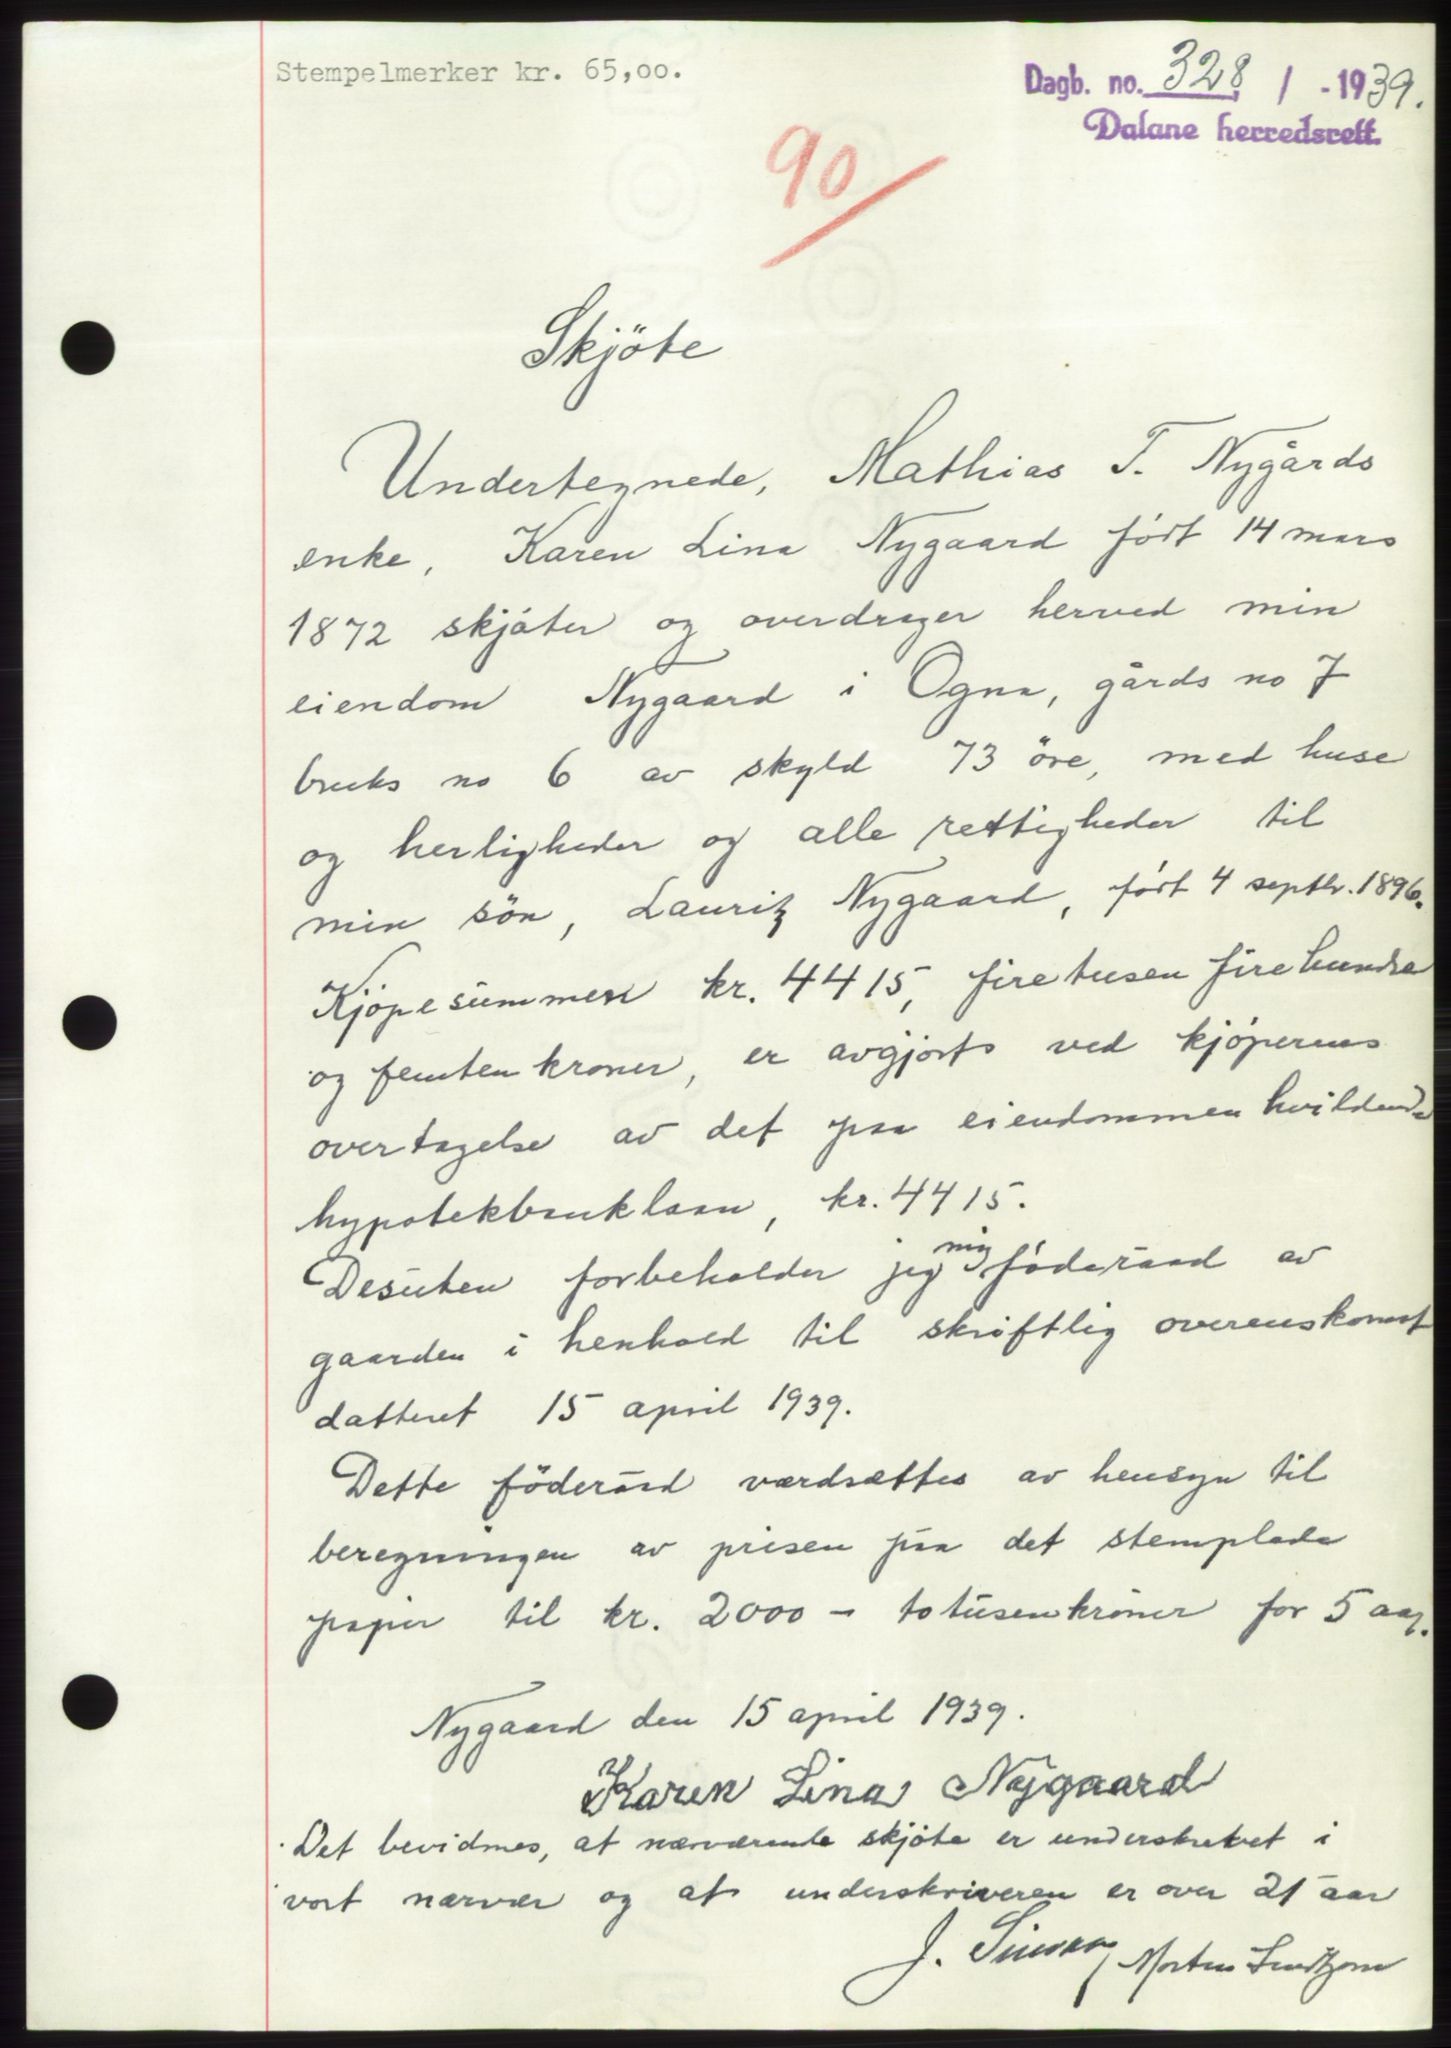 Stempelmerker kr. 65,oo.
Dagb. no. 328 / - 1939.
Dalane herredsrett.
90
Skjöte
Undertegnede, Mathias T. Nygårds
enke, Karen Lina Nygaard født 14 mars
1872 skjøter og overdrager herved min
eiendom Nygaard i Ogna, gårds no 7
bruks no 6 av skyld 73 öre, med huse
og herligheder og alle rettigheder til
min sön, Lauritz Nygaard, født 4 septbr. 1896.
Kjöpesummen kr. 4415, firetusen firehundre
og femten kroner, er avgjort ved kjøperens
overtagelse av det paa eiendommen hvilende
hypotekbanklaan, kr. 4415.
Desuten forbeholder jeg mig föderaad av
gaarden i henhold til skriftlig overenskomst
datteret 15 april 1939.
Dette föderåd værdsættes av hensyn til
beregningen av prisen paa det stemplede
papir til kr. 2000 - totusenkroner for 5 aar.
Nygaard den 15 april 1939.
Karen Lina Nygaard
Det bevidnes, at nærværende skjøte er underskrevet i
vort nærvær og at underskriveren er over 21 aar
J. Morten